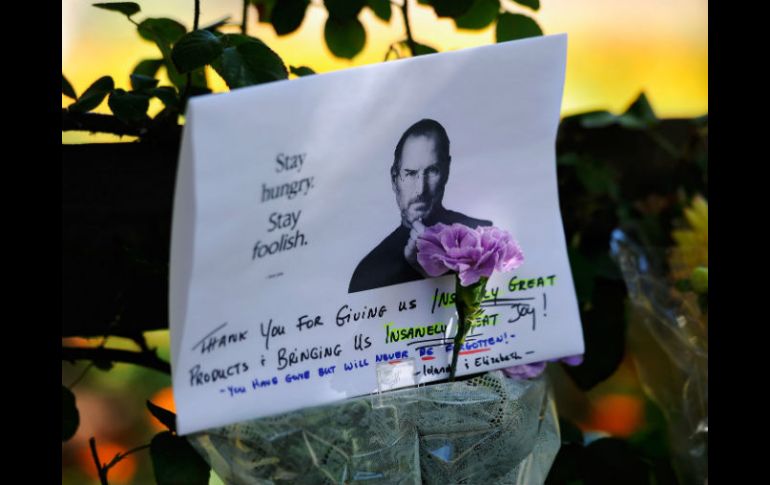 Stay
hungry.
Stay
foolish.
THANK YOU FOR GIVING US INSANELY GREAT
PRODUCTS & BRINGING US INSANELY GREAT JOY!
- YOU HAVE GONE BUT WILL NEVER BE FORGOTTEN! -
- Idan & Elizabeth -